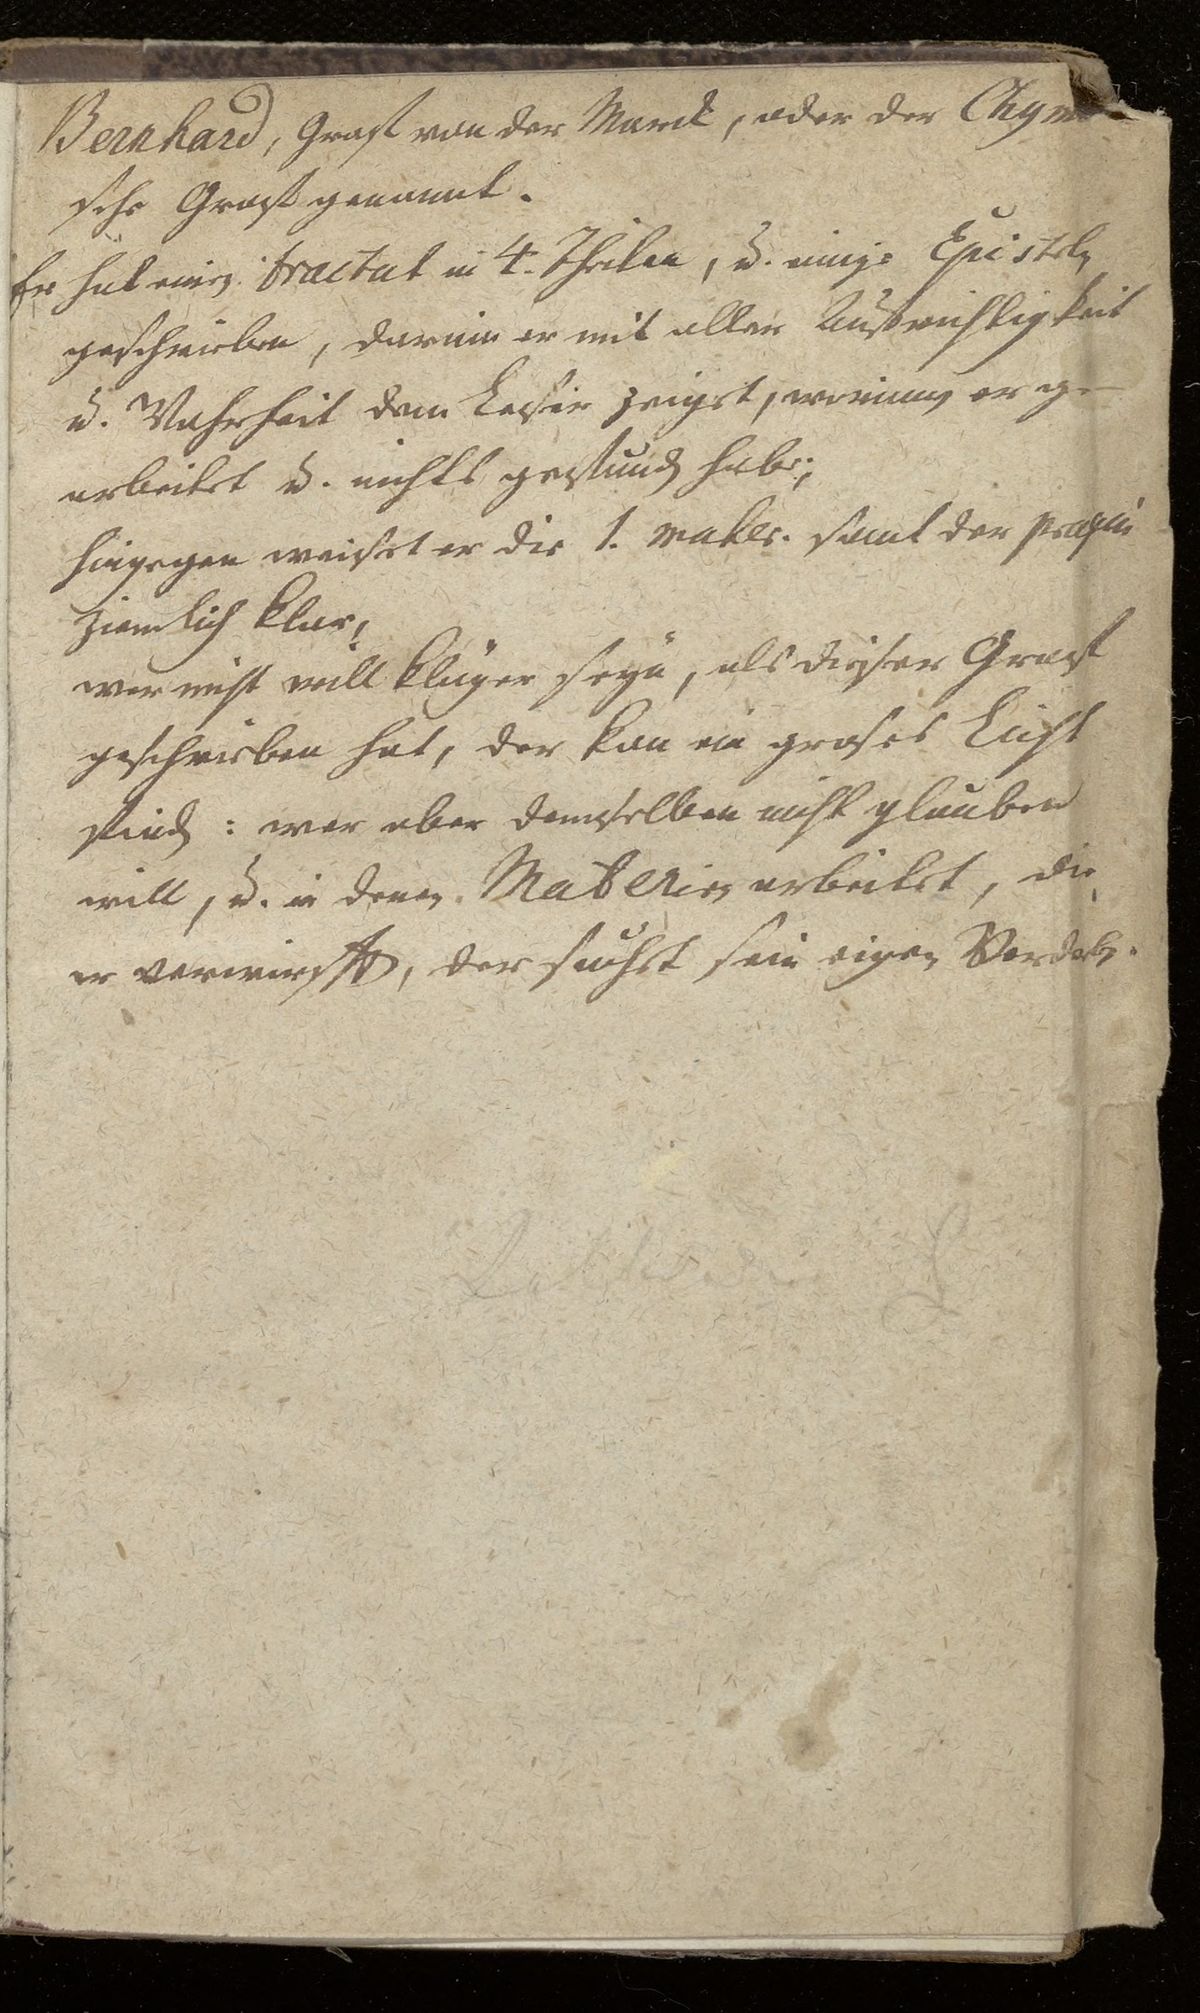 Bernhard, Graff von der Marck, oder der Chym
sche Graff genannt.
Er hat einen tractat in 4. Theilen, u. einige Episteln
geschrieben, darinn er mit aller Auffrichtigkeit
u. Wahrheit dem Leser zeiget, worinnen er ge-
arbeitet u. nichts gefunden habe;
hingegen weiset er die 1. mater. samt der praxin
ziemlich klar;
wer nicht will klüger seyn, als dieser Graff
geschrieben hat, der kan ein groses Licht
finden: wer aber demselben nicht glauben
will, u. in denen Materien arbeitet, die
er verwirfft, der suchet sein eigen Verderben.